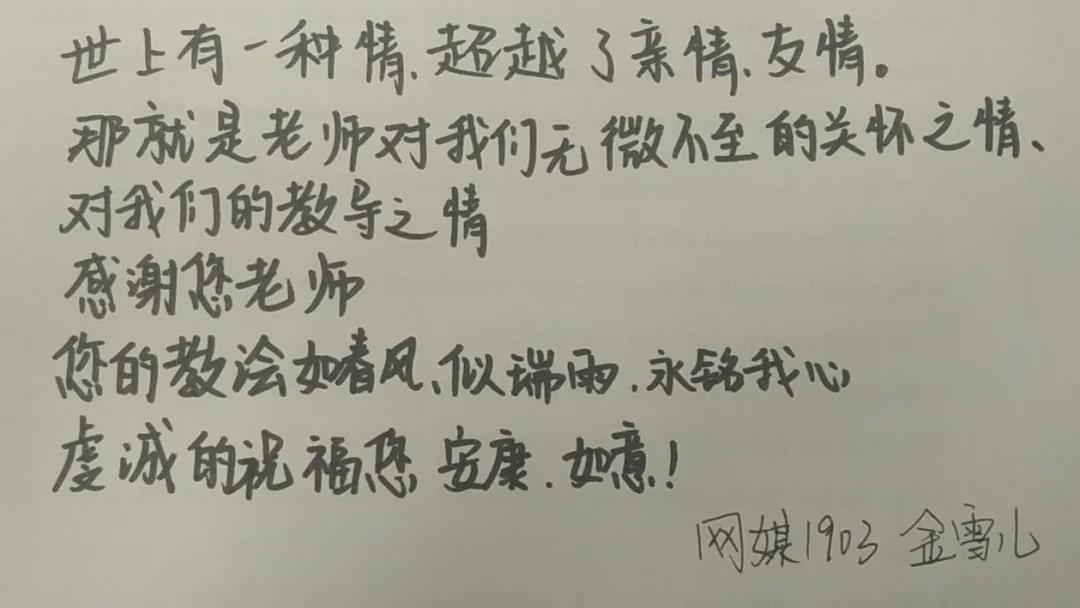 世上有一种情、超越了亲情、友情。
那就是老师对我们无微不至的关怀之情、
对我们的教导之情
感谢您老师
您的教浍如春风、似瑞雨、永铭我心
虔诚的祝福您 安康、如意!
网媒1903 金雪儿